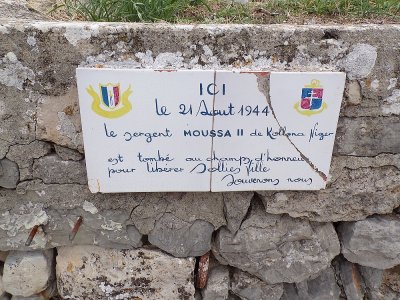 ICI
le 21 Août 1944
le sergent MOUSSA II de Kollona Niger
est tombé au champs d'honneur
pour libérer Solliès Ville
Souvenons nous